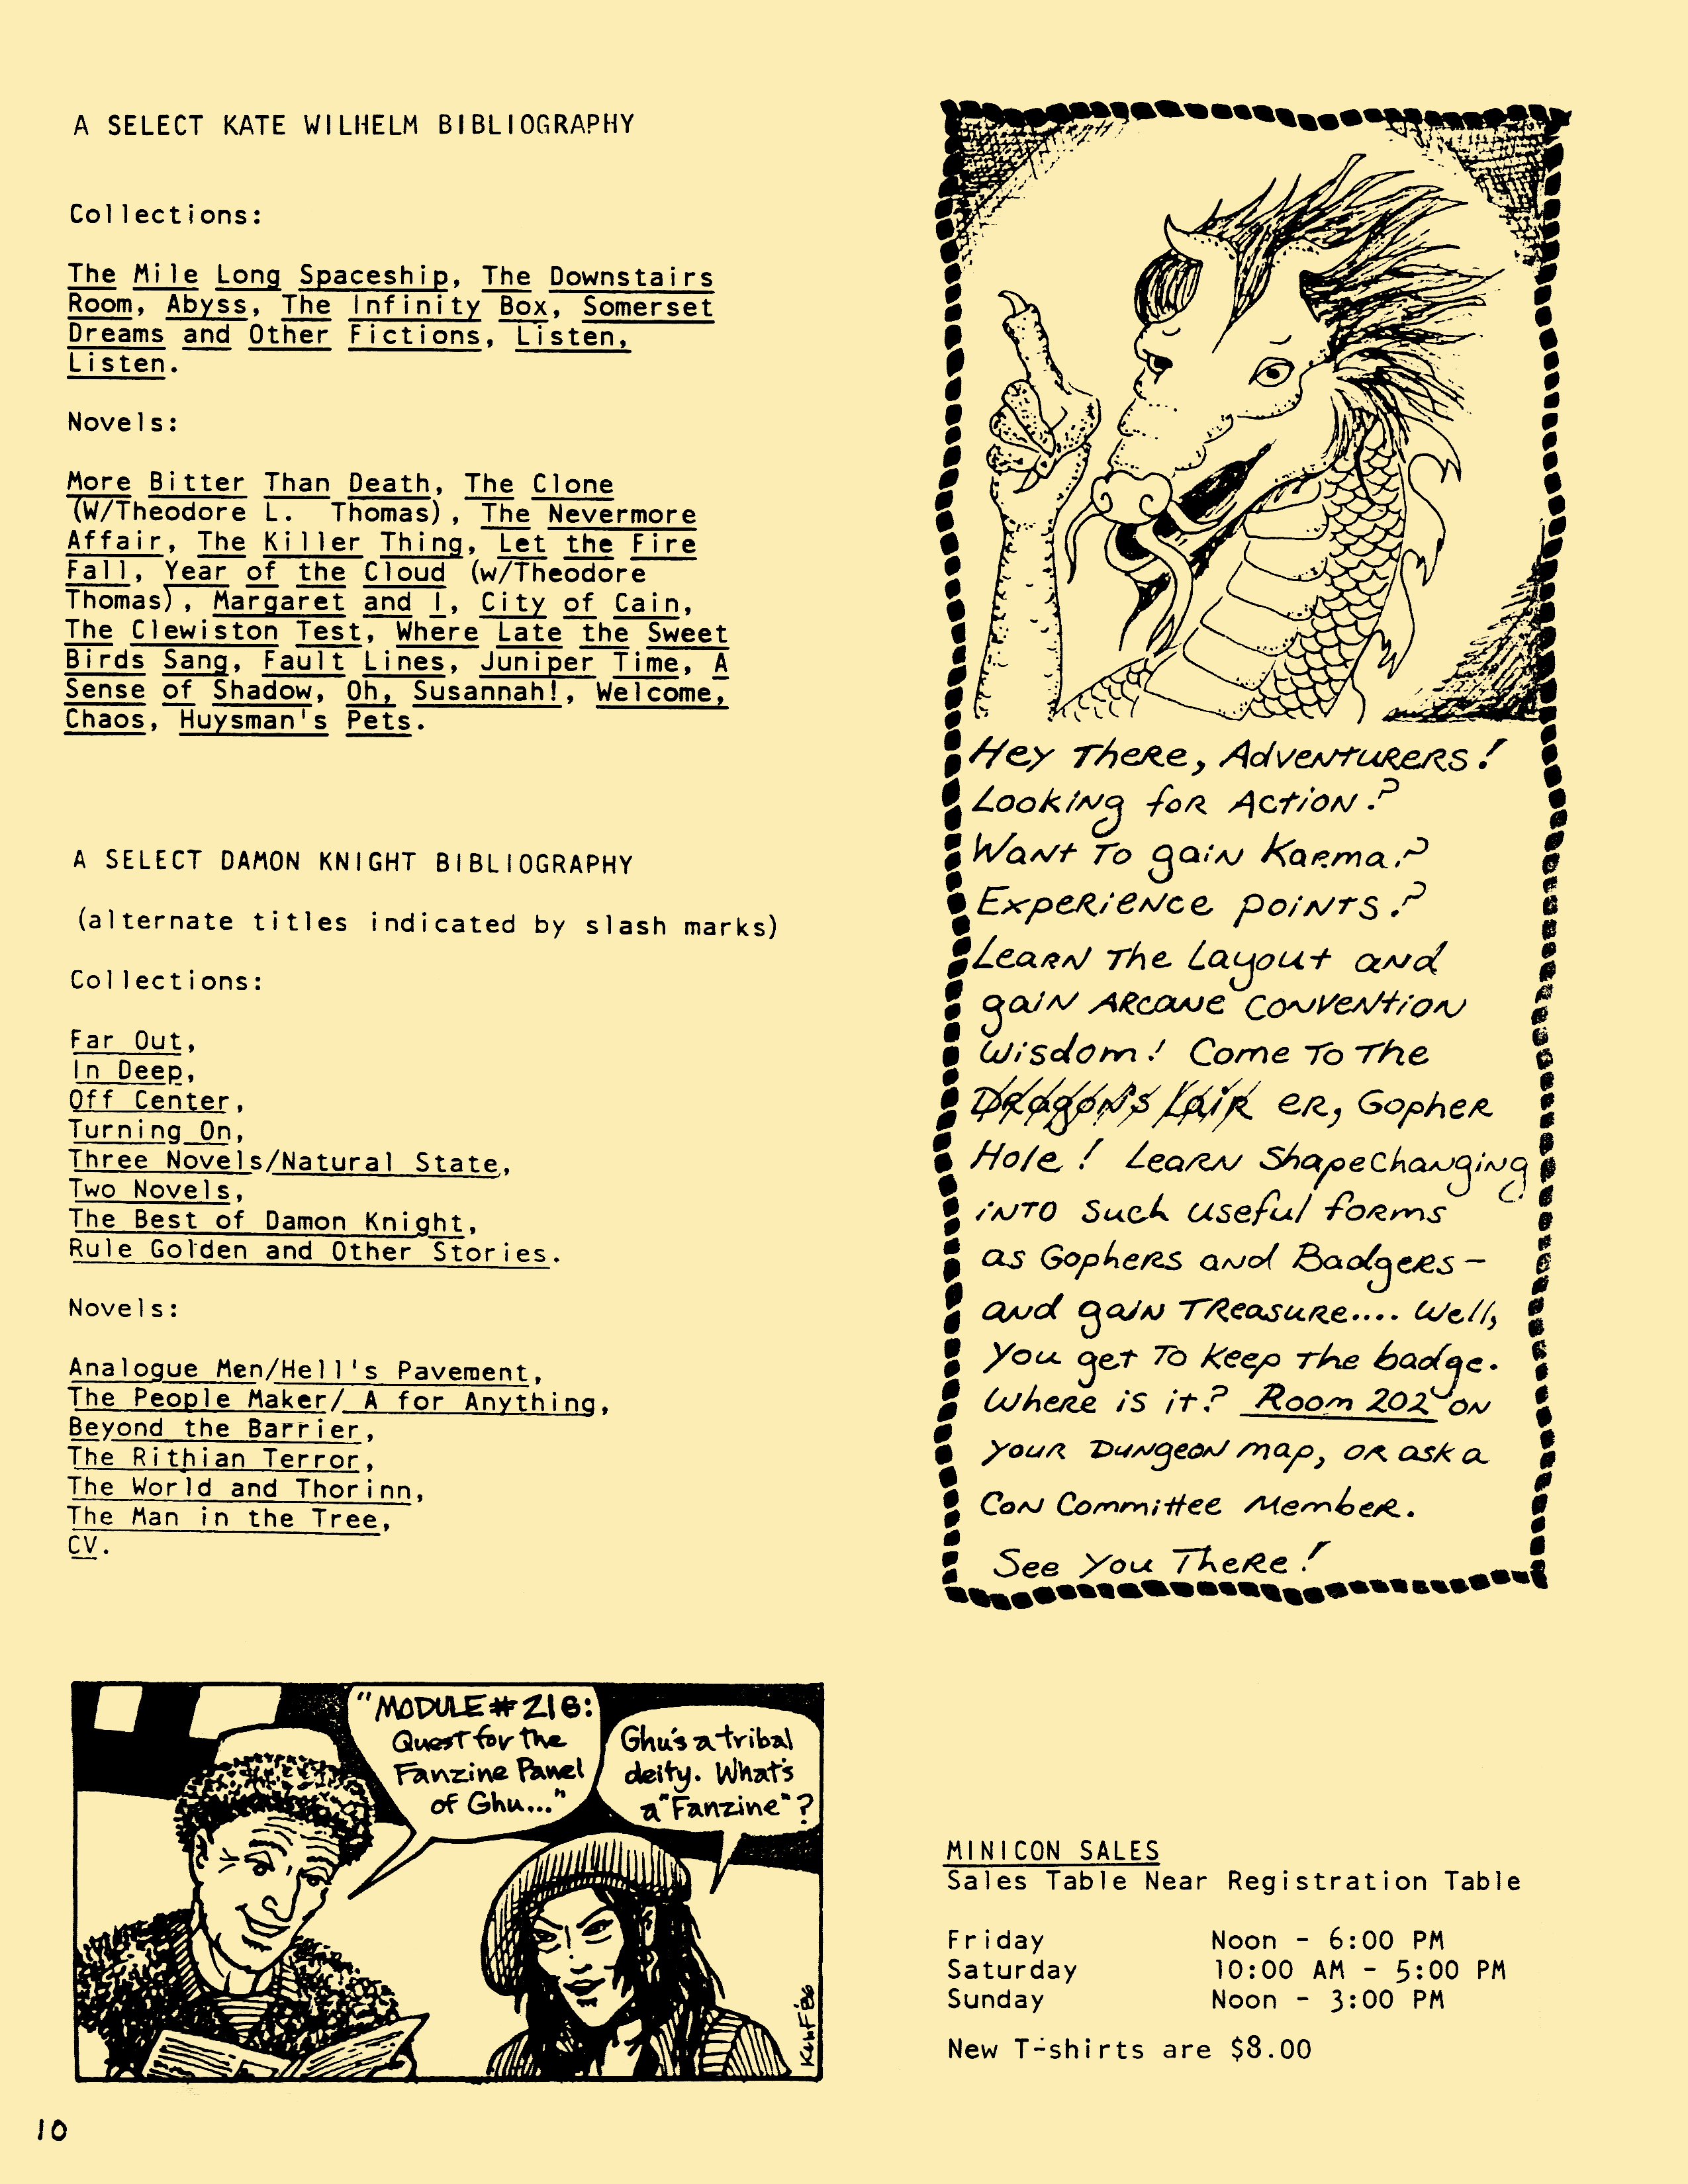 A SELECT KATE WILHELM BIBLIOGRAPHY
Collections:
The Mile Long Spaceship, The Downstairs
Room, Abyss, The Infinity Box, Somerset
Dreams and Other Fictions, Listen,
Listen.
Novels:
More Bitter Than Death, The Clone
(W/Theodore L. Thomas), The Nevermore
Affair, The Killer Thing, Let the Fire
Fall, Year of the Cloud (w/Theodore
Thomas), Margaret and I, City of Cain,
The Clewiston Test, Where Late the Sweet
Birds Sang, Fault Lines, Juniper Time, A
Sense of Shadow, Oh, Susannah!, Welcome,
Chaos, Huysman's Pets.
A SELECT DAMON KNIGHT BIBLIOGRAPHY
(alternate titles indicated by slash marks)
Collections:
Far Out,
In Deep,
Off Center,
Turning On,
Three Novels/Natural State,
Two Novels,
The Best of Damon Knight,
Rule Golden and Other Stories.
Novels:
Analogue Men/Hell's Pavement,
The People Maker/ A for Anything,
Beyond the Barrier,
The Rithian Terror,
The World and Thorinn,
The Man in the Tree,
CV.
"MODULE # 216:
Quest for the
Fanzine Panel
of Ghu..."
Ghu's a tribal
deity. What's
a "Fanzine"?
KenF '86
10
Hey There, Adventurers!
Looking for Action?
Want To gain Karma?
Experience points?
Learn The Layout and
gain Arcane Convention
Wisdom! Come To The
Dragon's Lair er, Gopher
Hole! Learn Shapechanging
into such useful forms
as Gophers and Badgers—
and gain Treasure.... Well,
you get To keep the badge.
Where is it? Room 202 on
your Dungeon map, or ask a
Con Committee Member.
See You There!
MINICON SALES
Sales Table Near Registration Table
Friday Noon - 6:00 PM
Saturday 10:00 AM - 5:00 PM
Sunday Noon - 3:00 PM
New T-shirts are $8.00